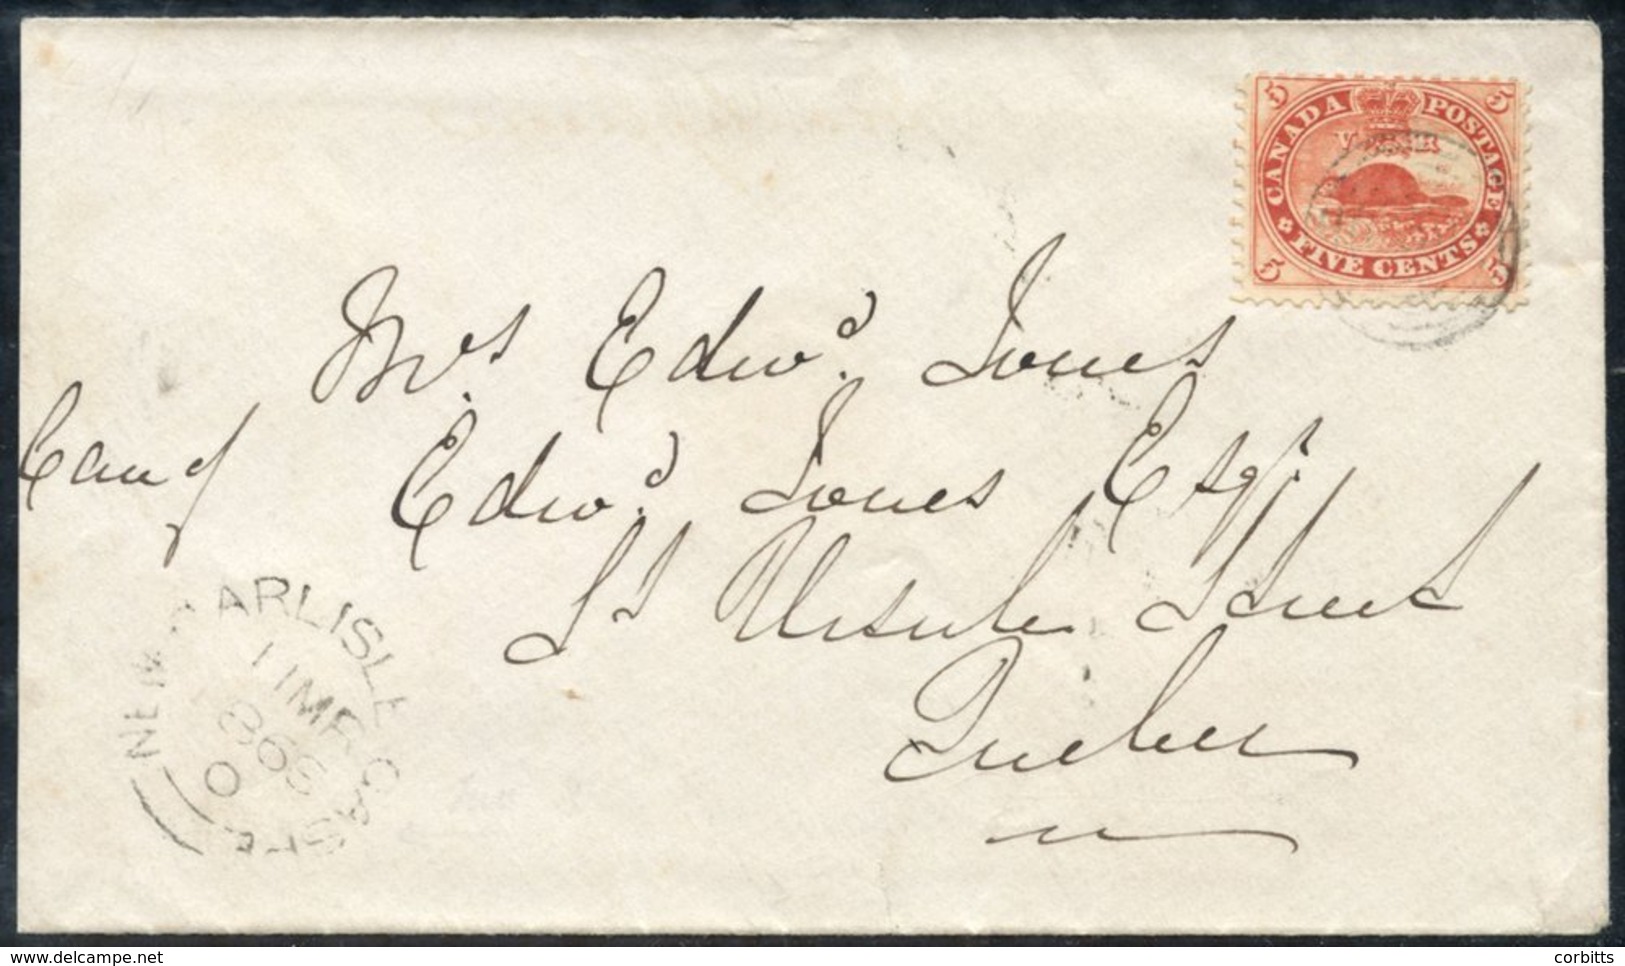 5 5
CANADA POSTAGE
FIVE CENTS
5 5
Mrs Edwd. Jones
Care of Edwd. Jones Esqr.
St Ursule Street
Quebec
NEW CARLISLE
11 MR
GASPE
delcampe.net
corbitts